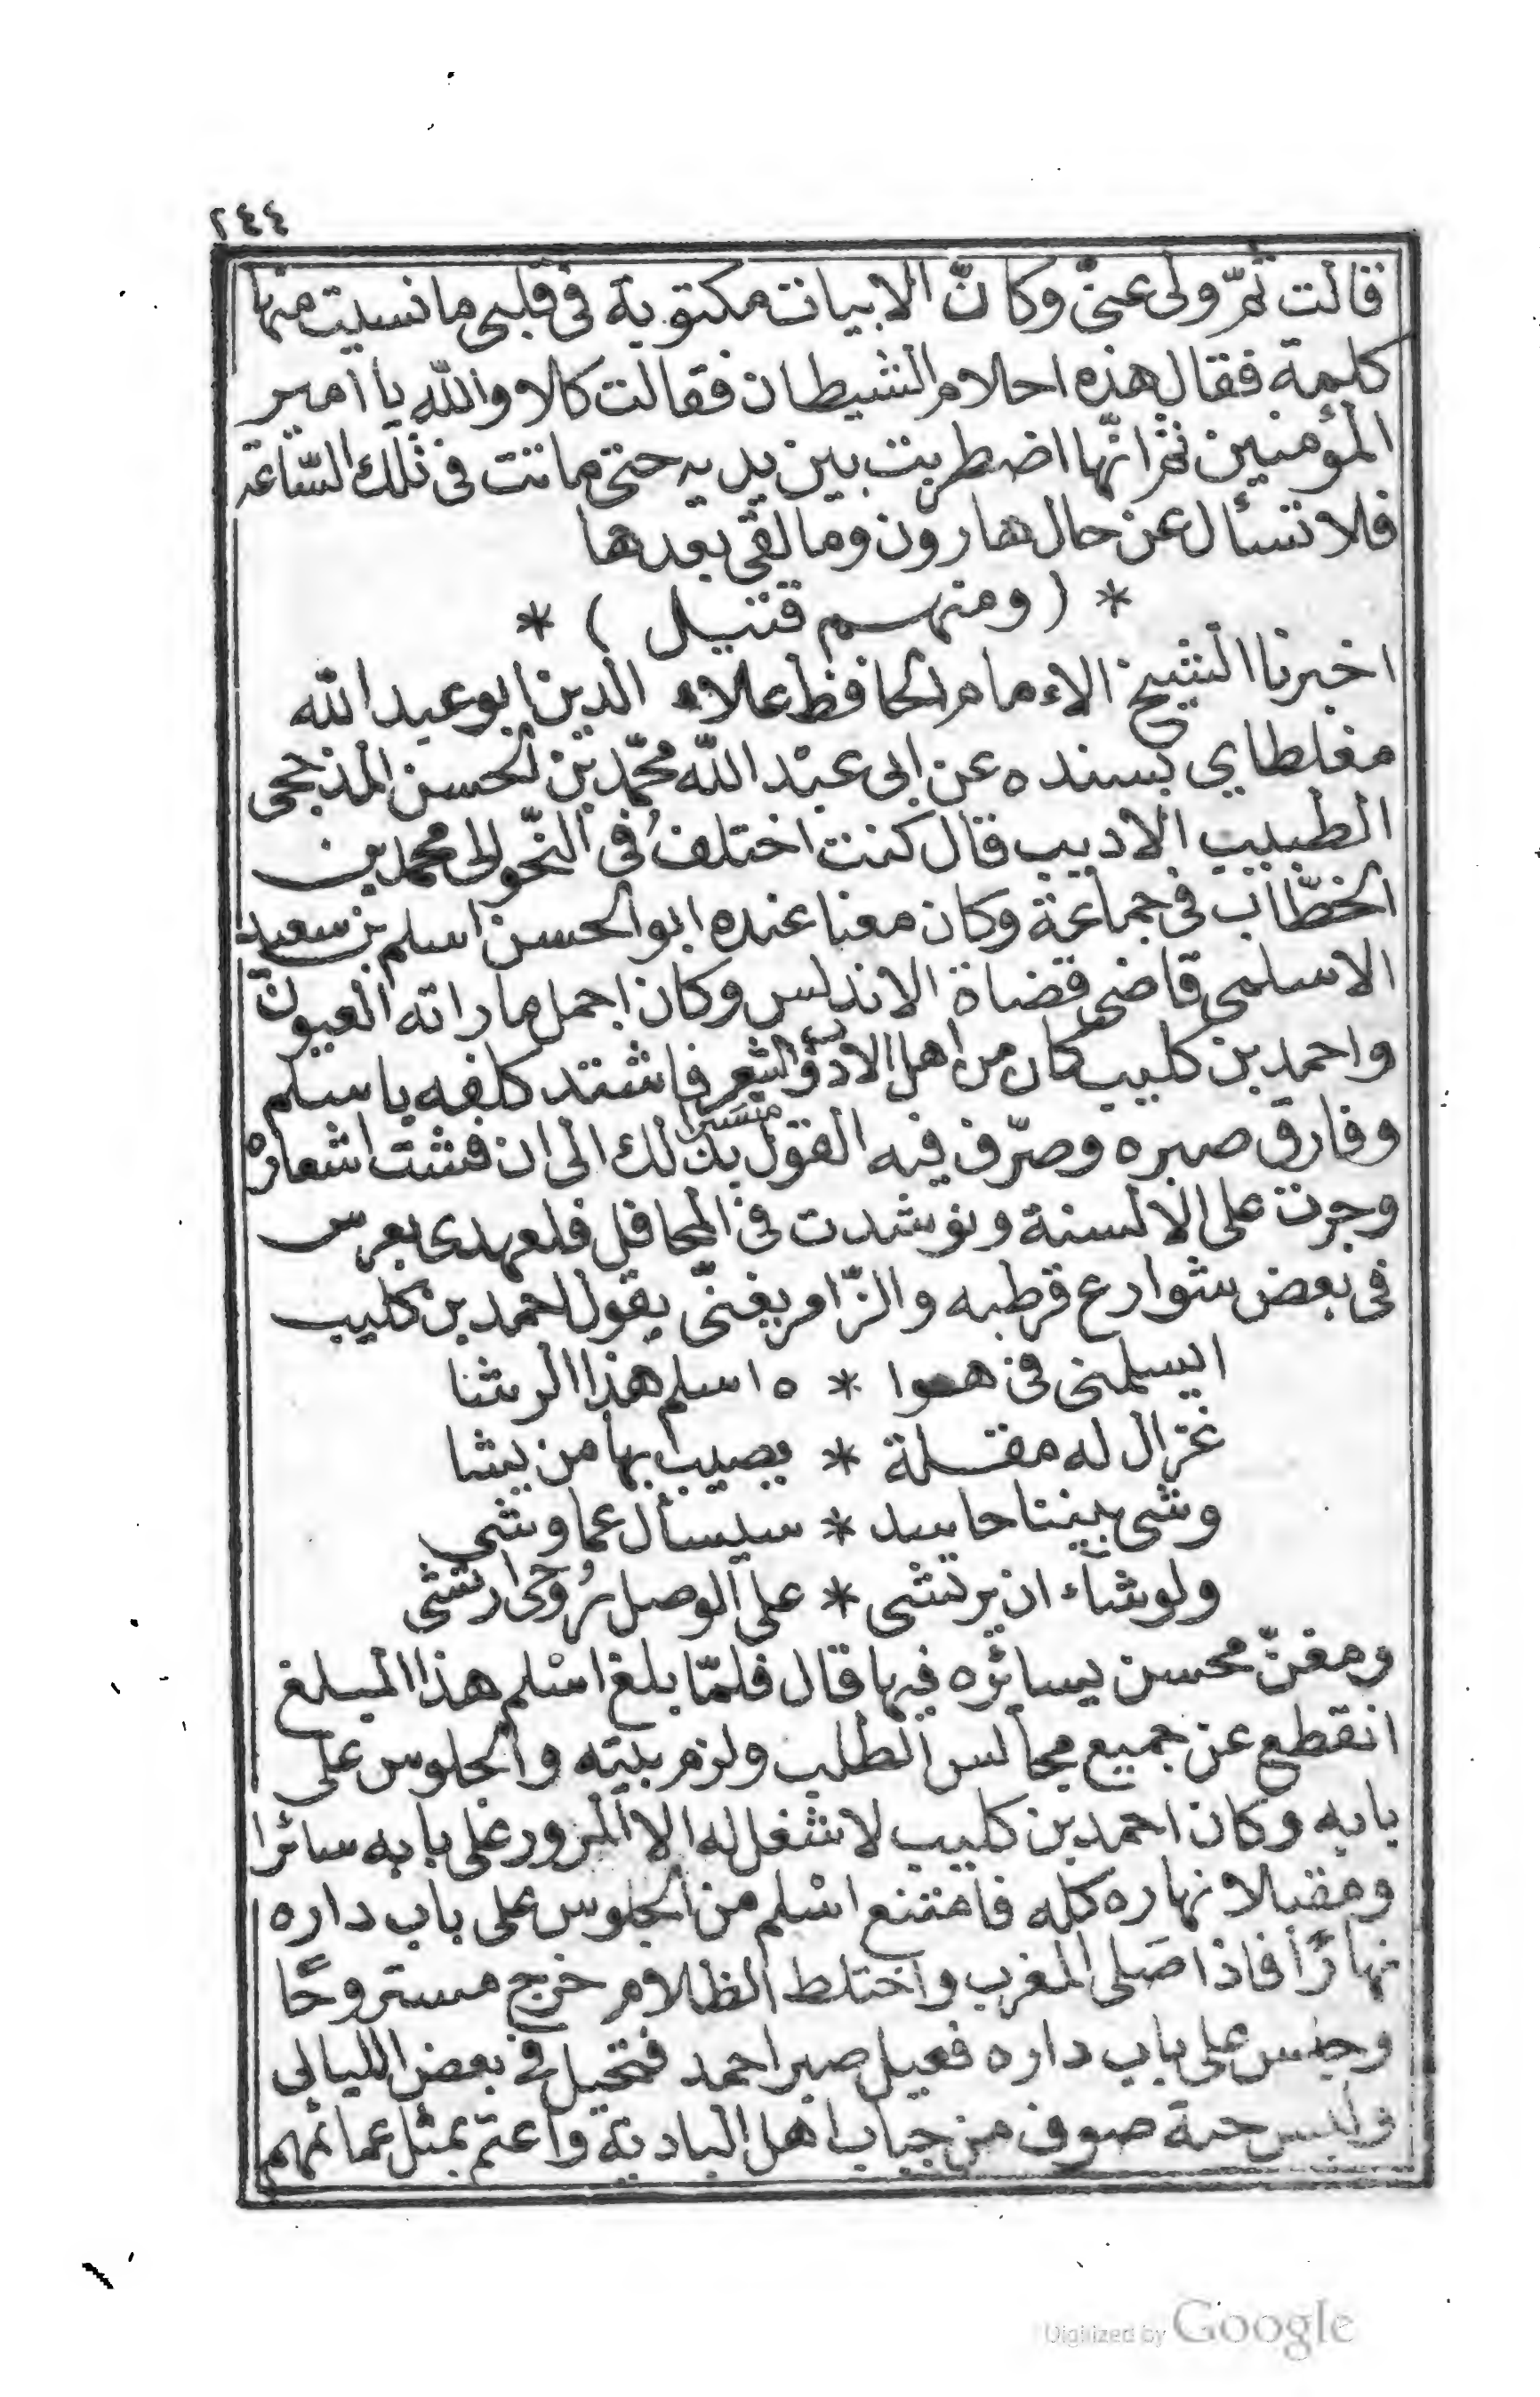 ٢٤٤
قالت ثمّ ولى عنىّ وكانّ الابيات مكتوبة فى قلبى ما نسيت منها
كلمة فقال هذه احلام الشيطان فقالت كلا والله يا امير
المؤمنين ثم انّها اضطربت بين يديه حتى ماتت فى تلك السّاعة
فلا تسأل عن حال هارون وما لقى بعدها
* ( ومنهم قتيل ) *
اخبرنا الشيخ الامام الحافظ علاء الدين ابو عبد الله
مغلطاي بسنده عن ابى عبد الله محمّد بن الحسن المذحجى
الطبيب الاديب قال كنت اختلف فى النّحو الى محمد بن
الخطّاب فى جماعة وكان معنا عنده ابو الحسن اسلم بن سعيد
الاسلمى قاضى قضاة الاندلس وكان اجمل ما راته العيون
واحمد بن كليب كان من اهل الادب والشعر فاشتد كلفه باسلم
وفارق صبره وصرّف فيه القول متسترا بذلك الى ان فشت اشعاره
وجرت على الالسنة ونوشدت فى المحافل فلعهدى بعرس
فى بعض شوارع قرطبه والزّامر يغنىّ بقول احمد بن كليب
ايسلمنى فى هوا * ه اسلم هذا الرشا
غزال له مقلة * يصيب بها من يشا
وشى بيننا حاسد * سيسأل عما وشى
ولو شاء ان يرتشى * على الوصل رُوحى ارتشى
ومغنّ محسن يسائره فيها قال فلمّا بلغ اسْلم هذا المبلغ
انقطع عن جميع مجالس الطلب ولزم بيته والجلوس على
بابه وكان احمد بن كليب لا شغل له الا المرور على بابه سائرا
ومقبلا نهاره كله فامتنع اسْلم من الجلوس على باب داره
نهارًا فاذا صَلى المغرب واختلط الظلام خرج مستروحًا
وجلس على باب داره فعيل صبر احمد فتحيل فى بعض الليالى
ولبس جبة صوف من جباب اهل البادية واعتم بمثل عمائمهم
Digitized by Google